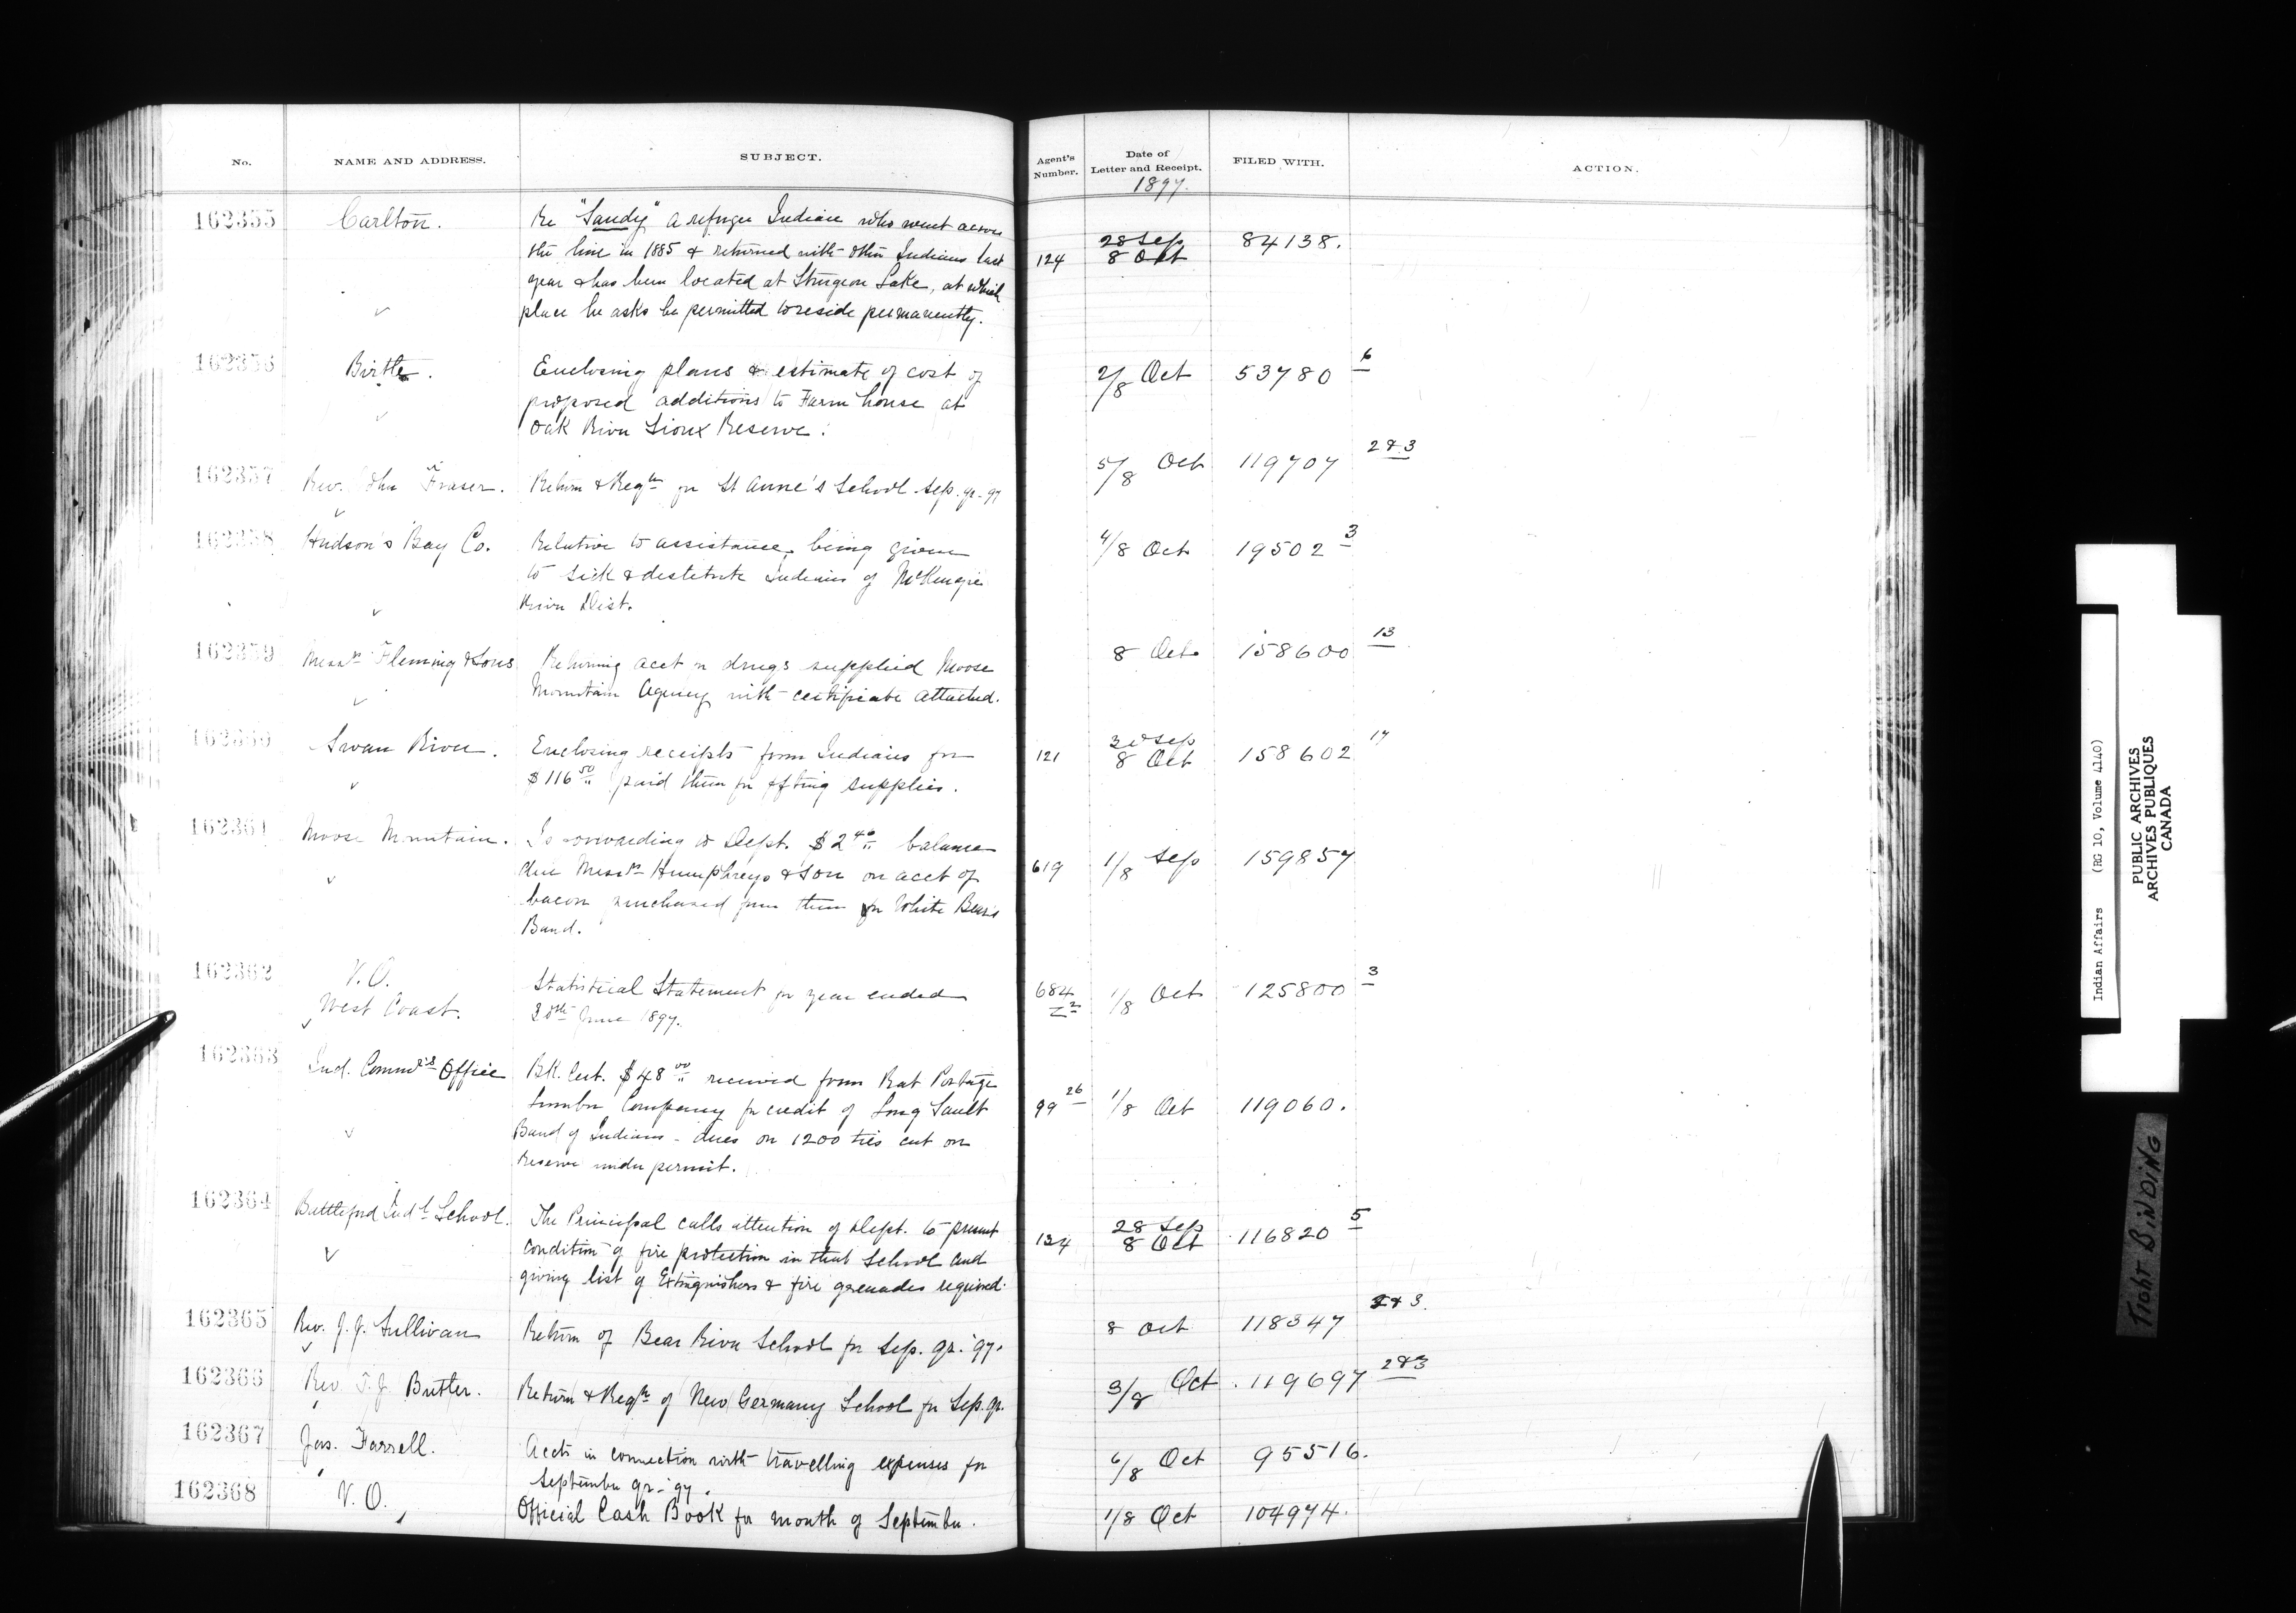 No.
NAME AND ADDRESS.
SUBJECT.
Agent's Number.
Date of Letter and Receipt.
1897.
FILED WITH.
ACTION.
162355 Carlton. Re "Sandy" a refugee Indian who went across
the line in 1885 & returned with other Indians last
year & has been located at Sturgeon Lake, at which
place he asks be permitted to reside permanently.
124 28 Sep 8 Oct 84138.
162356 Birtle. Enclosing plans & estimate of cost of
proposed additions to Farm house at
Oak River Sioux Reserve.
2/8 Oct 53780 6
162357 Rev. John Fraser. Return & Reqn for St Anne's School Sep. qr. 97
5/8 Oct 119707 2 & 3
162358 Hudson's Bay Co. Relative to assistance being given
to sick & destitute Indians of McKenzie
River Dist.
4/8 Oct 19502 3
162359 Messrs Fleming & Sons Returning acct for drugs supplied Moose
Mountain Agency with certificate attached.
8 Oct 158600 13
162360 Swan River. Enclosing receipts from Indians for
$116.50 paid them for ftting supplies.
121 30 Sep 8 Oct 158602 17
162361 Moose Mountain. Is forwarding to Dept. $2.40 balance
due Messrs Humphreys & Son on acct of
bacon purchased from them for White Bear's
Band.
619 1/8 Sep 159857
162362 V.O.
West Coast. Statistical Statement for year ended
30th June 1897.
684 1/8 Oct 125800 3
162363 Ind. Commr's Office Bk. Cert. $48.00 received from Rat Portage
Lumber Company for credit of Long Sault
Band of Indians - dues on 1200 ties cut on
Reserve under permit.
99 26 1/8 Oct 119060.
162364 Battleford Indl School. The Principal calls attention of Dept. to present
condition of fire protection in that School and
giving list of Extinguishers & fire grenades required.
124 28 Sep 8 Oct 116820 5
162365 Rev. J.J. Sullivan Return of Bear River School for Sep. qr. '97.
8 Oct 118347 2 & 3.
162366 Rev. T.J. Butler. Return & Reqn of New Germany School for Sep. qr.
3/8 Oct 119697 2 & 3
162367 Jas. Farrell. Accts in connection with travelling expenses for
September qr - 97.
6/8 Oct 95516.
162368 V.O. Official Cash Book for month of September.
1/8 Oct 104974.
Indian Affairs (RG 10, Volume 4140)
PUBLIC ARCHIVES
ARCHIVES PUBLIQUES
CANADA
TIGHT BINDING